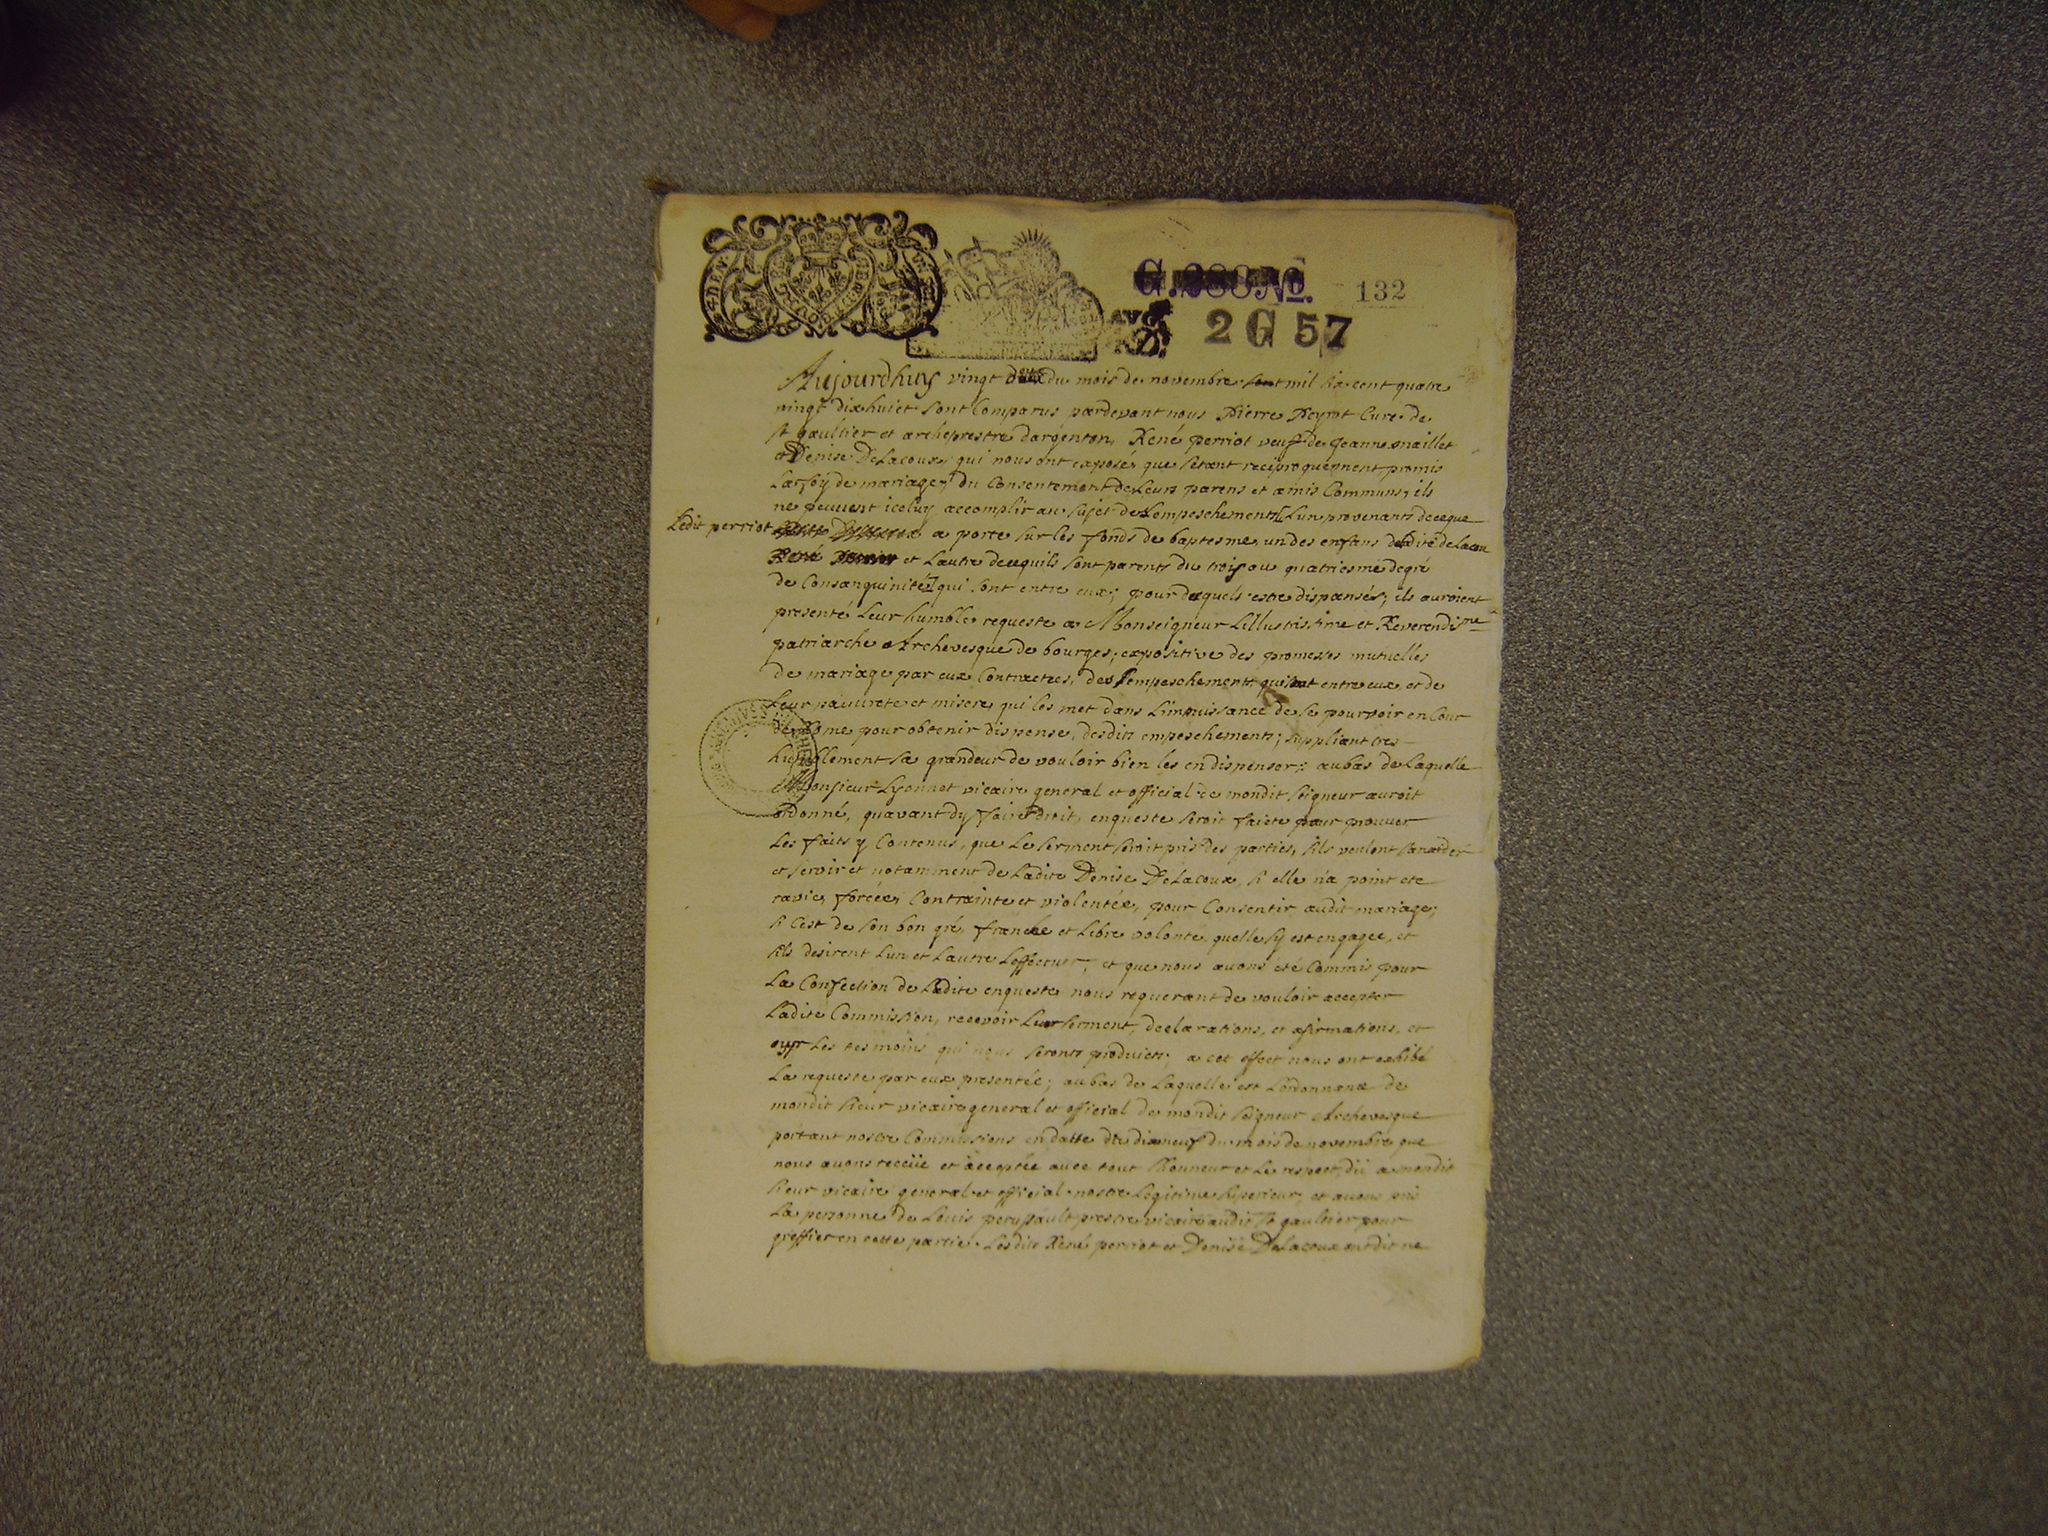 G. 288 No.
132
2 G 57
Aujourdhuy vingt du mois de novembre mil six cent quatre
vingt dixhuict sont comparus pardevant nous Pierre Peyrot Curé de
st gaultier et archeprestre dargenton, René perriot veuf de Jeanne maillet
et Denise Delacoux, qui nous ont exposé, que sétant reciproquement promis
La foy de mariage, du Consentement de Leurs parens et amis Communs, ils
ne peuvent iceluy accomplir au sujet de Lempeschement Lun provenants de ce que
Ledit perriot a porté sur les fonds de baptesme un des enfans de Ladite Delacou
René et Lautre de ce quils sont parents du trois au quatriesme degré
de Consanguinité qui sont entre eux, pour desquels estre dispansés, ils auroient
presenté Leur humble requeste a Monseigneur Lillustrissime et Reverendisme
patriarche Archevesque de bourges, expositive des promesses mutuelles
de mariage par eux Contractées, des empeschements qui sont entre eux, et de
Leur pauvreté et misere qui les met dans Limpuissance de se pourvoir en Cour
de Rome pour obtenir dispense, desdits empeschements, suppliant tres
humblement sa grandeur de vouloir bien les en dispenser; au bas de Laquelle
Monsieur Lyonnet vicaire general et official de mondit seigneur auroit
ordonné, quavant dy faire droit, enqueste seroit faicte pour prouver
Les faits y Contenus, que Le serment seroit pris des parties, sils veulent
et servir et notamment de Ladite Denise Delacoux, si elle n'a point eté
ravie, forcée, Contrainte et violentée, pour Consentir audit mariage,
si Cest de son bon gré, franche et Libre volonté, quelle sy est engagée, et
sils desirent Lun et Lautre Leffectuer, et que nous avons été Commis pour
La Confection de Ladite enqueste nous requerant de vouloir accepter
Ladite Commission, recevoir Leur serment, declarations, et afirmations, et
ouyr Les tesmoins qui nous seronts produicts, a cet effect nous ont exhibé
La requeste par eux presentée, au bas de Laquelle est Lordonnance de
mondit sieur vicaire general et official de mondit seigneur Archevesque
portant nostre Commissions en datte du dixneuf du mois de novembre que
nous avons receüe et acceptée avec tout Lhonneur et Le respect dü a mondit
sieur vicaire general et official nostre Legitime superieur, et avons pris
La personne de Louis prestre vicaire audit st gaultier pour
greffier en cette partie. Lesdits René perriot et Denise Delacoux ont dit ne